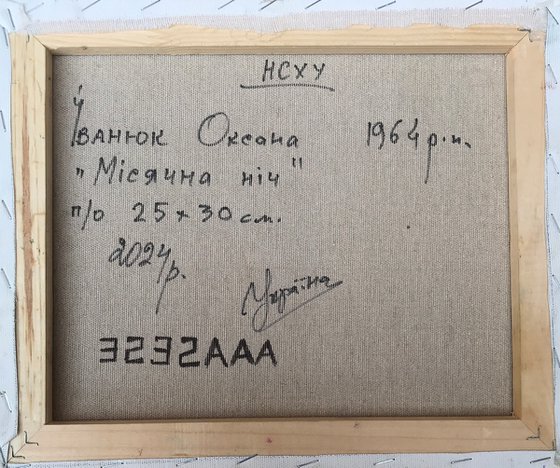 НСХУ
Іванюк Оксана 1964 р.н.
"Місячна ніч"
п/о 25 х 30 см.
2024 р.
Україна
ЭSЕSААА